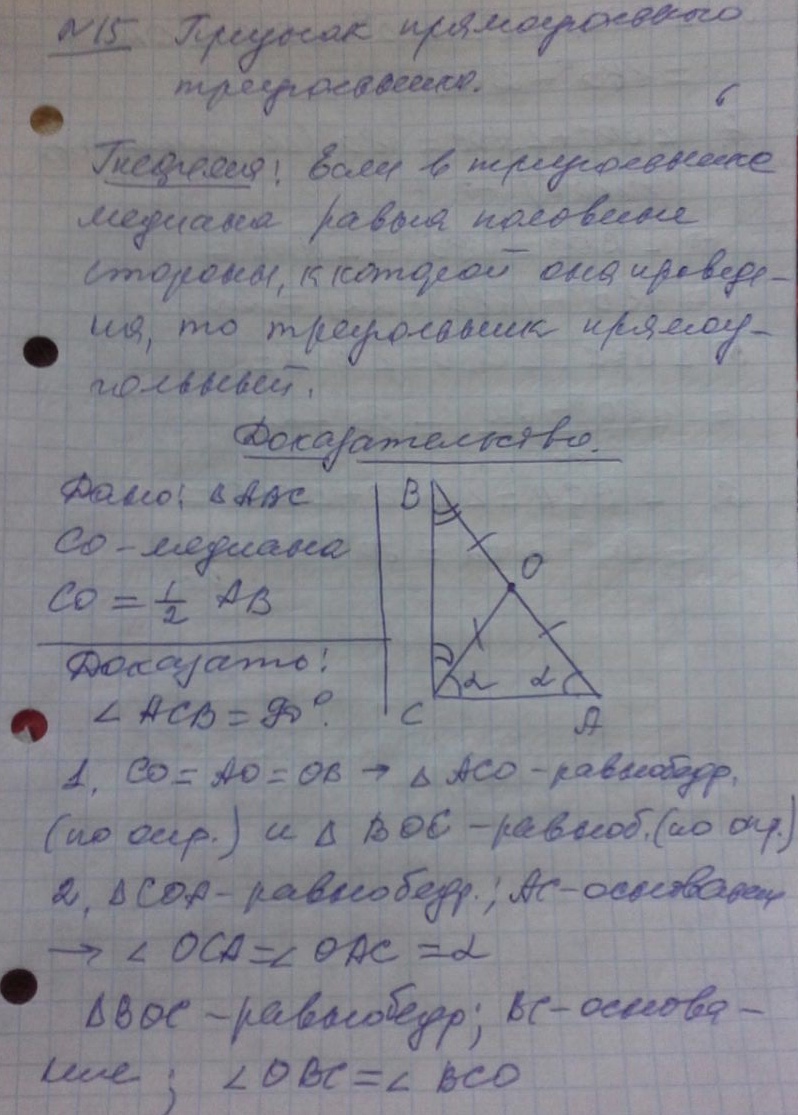 №15 Признак прямоугольного
треугольника.
Теорема: Если в треугольнике
медиана равна половине
стороны, к которой она проведе-
на, то треугольник прямоу-
гольный.
Доказательство.
Дано: △ABC
CO - медиана
CO = 1/2 AB
Доказать:
∠ACB = 90°.
B
O
C
α
α
A
1, CO = AO = OB → △ ACO - равнобедр.
(по опр.) и △ BOC - равноб. (по опр.)
2, △COA - равнобедр.; AC - основание
→ ∠OCA = ∠OAC = α
△BOC - равнобедр; BC - основа-
ние; ∠OBC = ∠BCO